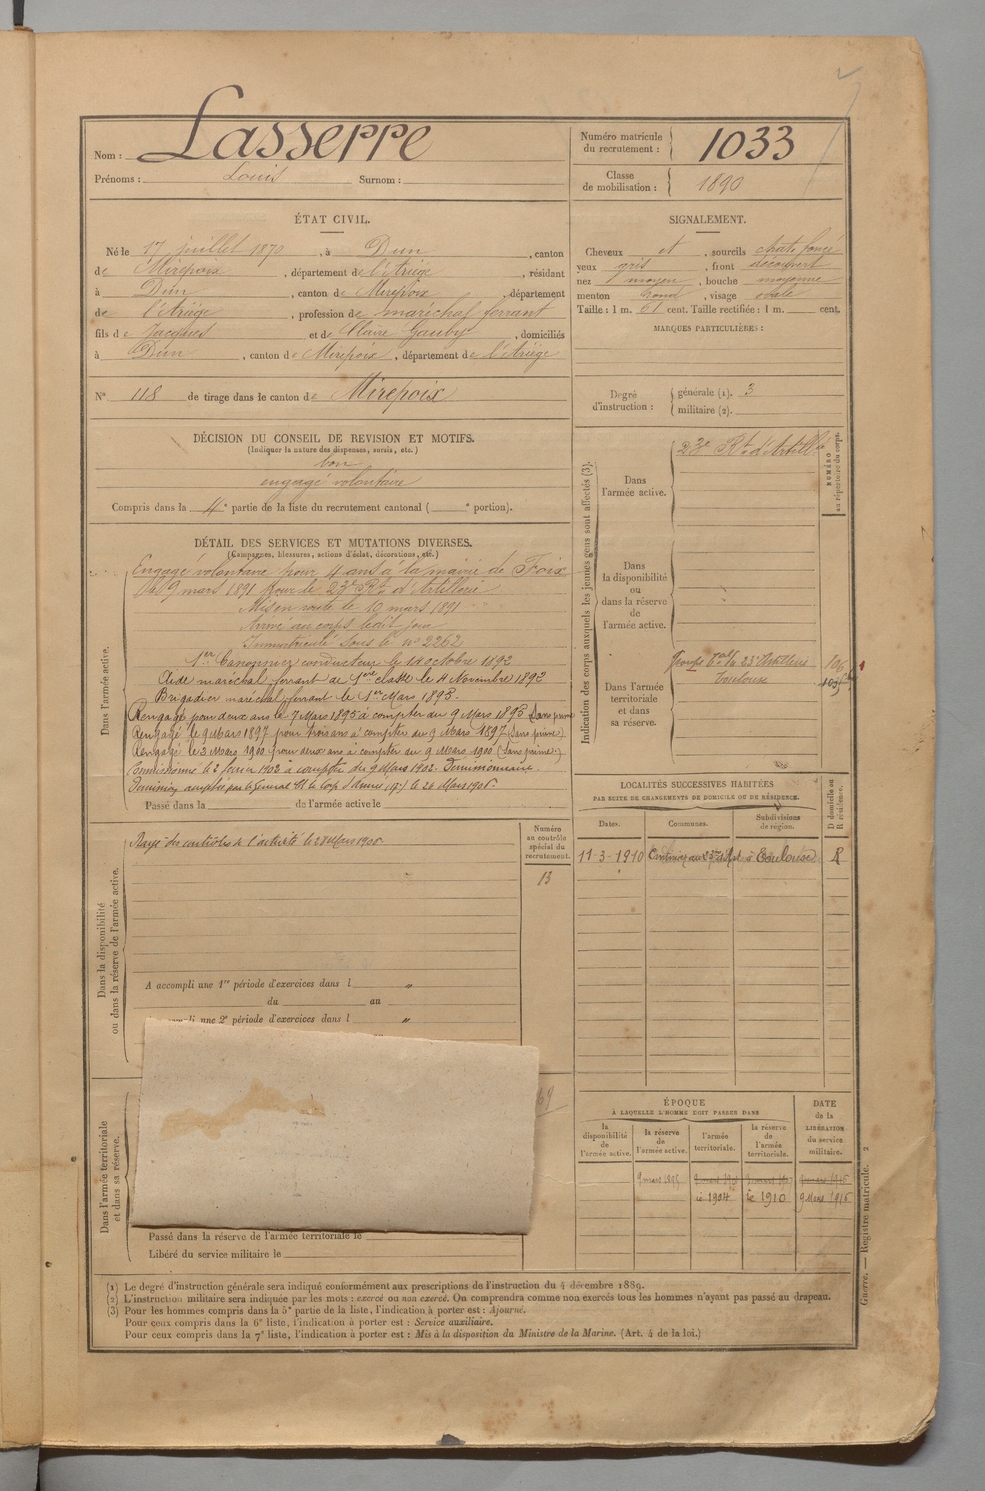 Nom : Lasserre
Prénoms : Louis Surnom :
Numéro matricule du recrutement : 1033
Classe de mobilisation : 1890
ÉTAT CIVIL.
Né le 17 juillet 1870, à Dun, canton
de Mirepoix, département de l'Ariège, résidant
à Dun, canton de Mirepoix, département
de l'Ariège, profession de maréchal ferrant
fils de Jacques et de Claire Gauby, domiciliés
à Dun, canton de Mirepoix, département de l'Ariège
N° 118 de tirage dans le canton de Mirepoix
SIGNALEMENT.
Cheveux et, sourcils chat. foncé
yeux gris, front découvert
nez moyen, bouche moyenne
menton rond, visage ovale
Taille : 1 m. 61 cent. Taille rectifiée : 1 m. cent.
MARQUES PARTICULIÈRES :
Degré d'instruction : générale (1). 3
militaire (2).
DÉCISION DU CONSEIL DE REVISION ET MOTIFS.
(Indiquer la nature des dispenses, sursis, etc.)
bon
engagé volontaire
Compris dans la 4e partie de la liste du recrutement cantonal ( e portion).
DÉTAIL DES SERVICES ET MUTATIONS DIVERSES.
(Campagnes, blessures, actions d'éclat, décorations, etc.)
Dans l'armée active.
Engagé volontaire pour 4 ans à la mairie de Foix
le 9 mars 1891 pour le 23e Rt d'Artillerie
Mis en route le 10 mars 1891
Arrivé au corps ledit jour
Immatriculé sous le n° 2262
1er Canonnier conducteur le 10 octobre 1892
Aide maréchal ferrant de 1ère classe le 4 Novembre 1892
Brigadier maréchal ferrant le 1er Mars 1893.
Rengagé pour deux ans le 7 Mars 1895 à compter du 9 Mars 1895 (Sans prime)
Rengagé le 9 Mars 1897 pour trois ans à compter du 9 Mars 1897 (Sans prime)
Rengagé le 3 Mars 1900 pour deux ans à compter du 9 Mars 1900 (Sans prime)
Commissionné le 2 février 1902 à compter du 9 Mars 1902.
Passé dans la de l'armée active le
Dans la disponibilité ou dans la réserve de l'armée active.
Rayé des contrôles de l'activité le 28 Mars
Numéro au contrôle spécial du recrutement.
13
A accompli une 1re période d'exercices dans l "
du au
une 2e période d'exercices dans l "
Dans l'armée territoriale et dans sa réserve.
Passé dans la réserve de l'armée territoriale le
Libéré du service militaire le
Indication des corps auxquels les jeunes gens sont affectés (3).
NUMÉRO au répertoire du corps.
Dans l'armée active.
23e Rt d'Artill
Dans la disponibilité ou dans la réserve de l'armée active.
Dans l'armée territoriale et dans sa réserve.
Groupe du 23e Artillerie
Toulouse
LOCALITÉS SUCCESSIVES HABITÉES
PAR SUITE DE CHANGEMENTS DE DOMICILE OU DE RÉSIDENCE.
Dates. Communes. Subdivisions de région. D domicile ou R résidence.
11-3-1910 à Toulouse R
ÉPOQUE
À LAQUELLE L'HOMME DOIT PASSER DANS
DATE de la LIBÉRATION du service militaire.
la disponibilité de l'armée active.
la réserve de l'armée active.
l'armée territoriale.
la réserve de l'armée territoriale.
9 mars 1895
1904 1910 9 Mars 1916
(1) Le degré d'instruction générale sera indiqué conformément aux prescriptions de l'instruction du 4 décembre 1889.
(2) L'instruction militaire sera indiquée par les mots : exercé ou non exercé. On comprendra comme non exercés tous les hommes n'ayant pas passé au drapeau.
(3) Pour les hommes compris dans la 5e partie de la liste, l'indication à porter est : Ajourné.
Pour ceux compris dans la 6e liste, l'indication à porter est : Service auxiliaire.
Pour ceux compris dans la 7e liste, l'indication à porter est : Mis à la disposition du Ministre de la Marine. (Art. 4 de la loi.)
Guerre. — Registre matricule. 2